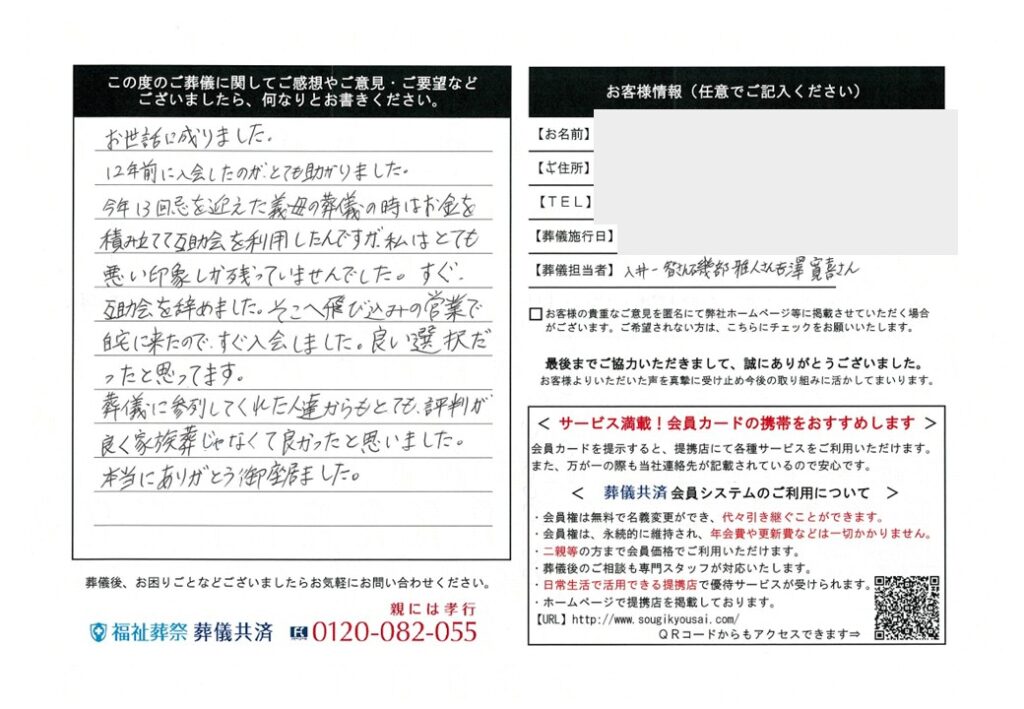 この度のご葬儀に関してご感想やご意見・ご要望など
ございましたら、何なりとお書きください。
お世話に成りました。
12年前に入会したのが、とても助かりました。
今年13回忌を迎えた義母の葬儀の時はお金を
積み立てて互助会を利用したんですが、私はとても
悪い印象しか残っていませんでした。すぐ、
互助会を辞めました。そこへ飛び込みの営業で
自宅に来たので、すぐ入会しました。良い選択だ
ったと思ってます。
葬儀に参列してくれた人達からもとても、評判が
良く家族葬じゃなくて良かったと思いました。
本当にありがとう御座居ました。
葬儀後、お困りごとなどございましたらお気軽にお問い合わせください。
親には孝行
福祉葬祭 葬儀共済 0120-082-055
お客様情報（任意でご記入ください）
【お名前】
【ご住所】
【ＴＥＬ】
【葬儀施行日】
【葬儀担当者】 入井一智さん磯部雅人さん吉澤寛喜さん
□お客様の貴重なご意見を匿名にて弊社ホームページ等に掲載させていただく場合
がございます。ご希望されない方は、こちらにチェックをお願いいたします。
最後までご協力いただきまして、誠にありがとうございました。
お客様よりいただいた声を真摯に受け止め今後の取り組みに活かしてまいります。
＜ サービス満載！会員カードの携帯をおすすめします ＞
会員カードを提示すると、提携店にて各種サービスをご利用いただけます。
また、万が一の際も当社連絡先が記載されているので安心です。
＜ 葬儀共済 会員システムのご利用について ＞
・会員権は無料で名義変更ができ、代々引き継ぐことができます。
・会員権は、永続的に維持され、年会費や更新費などは一切かかりません。
・二親等の方まで会員価格でご利用いただけます。
・葬儀後のご相談も専門スタッフが対応いたします。
・日常生活で活用できる提携店で優待サービスが受けられます。
・ホームページで提携店を掲載しております。
【URL】http://www.sougikyousai.com/
ＱＲコードからもアクセスできます⇒